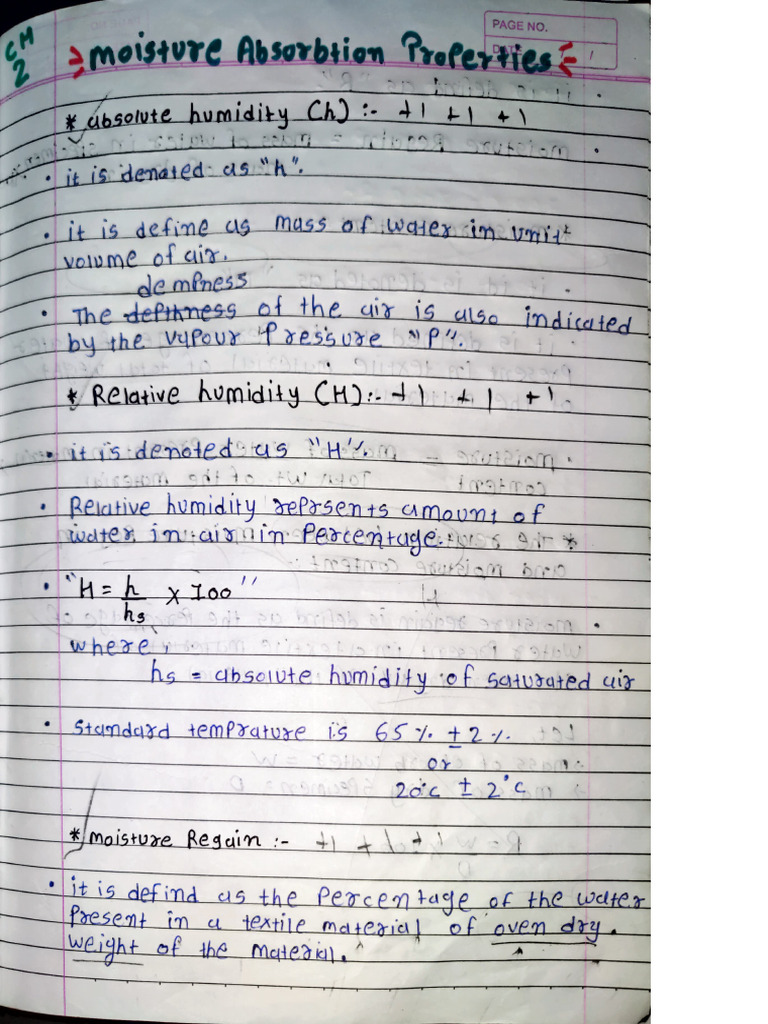 PAGE NO.
CH
2
Moisture Absorbtion Properties
* absolute humidity (h) :- +1 +1 +1
• it is denated as "h".
• it is define as mass of water in unit
volume of air.
dempness
• The depthness of the air is also indicated
by the vypour pressure "P".
* Relative humidity (H) :- +1 +1 +1
• it is denoted as "H".
• Relative humidity reprsents amount of
water in air in Percentage.
• "H = h/hs x 100"
where
hs = absolute humidity of saturated air
• Standard temprature is 65 % ± 2 %.
or
20°c ± 2°c
* moisture Regain :- +1 + 1 + 1
• it is defind as the percentage of the water
present in a textile material of oven dry.
weight of the material.